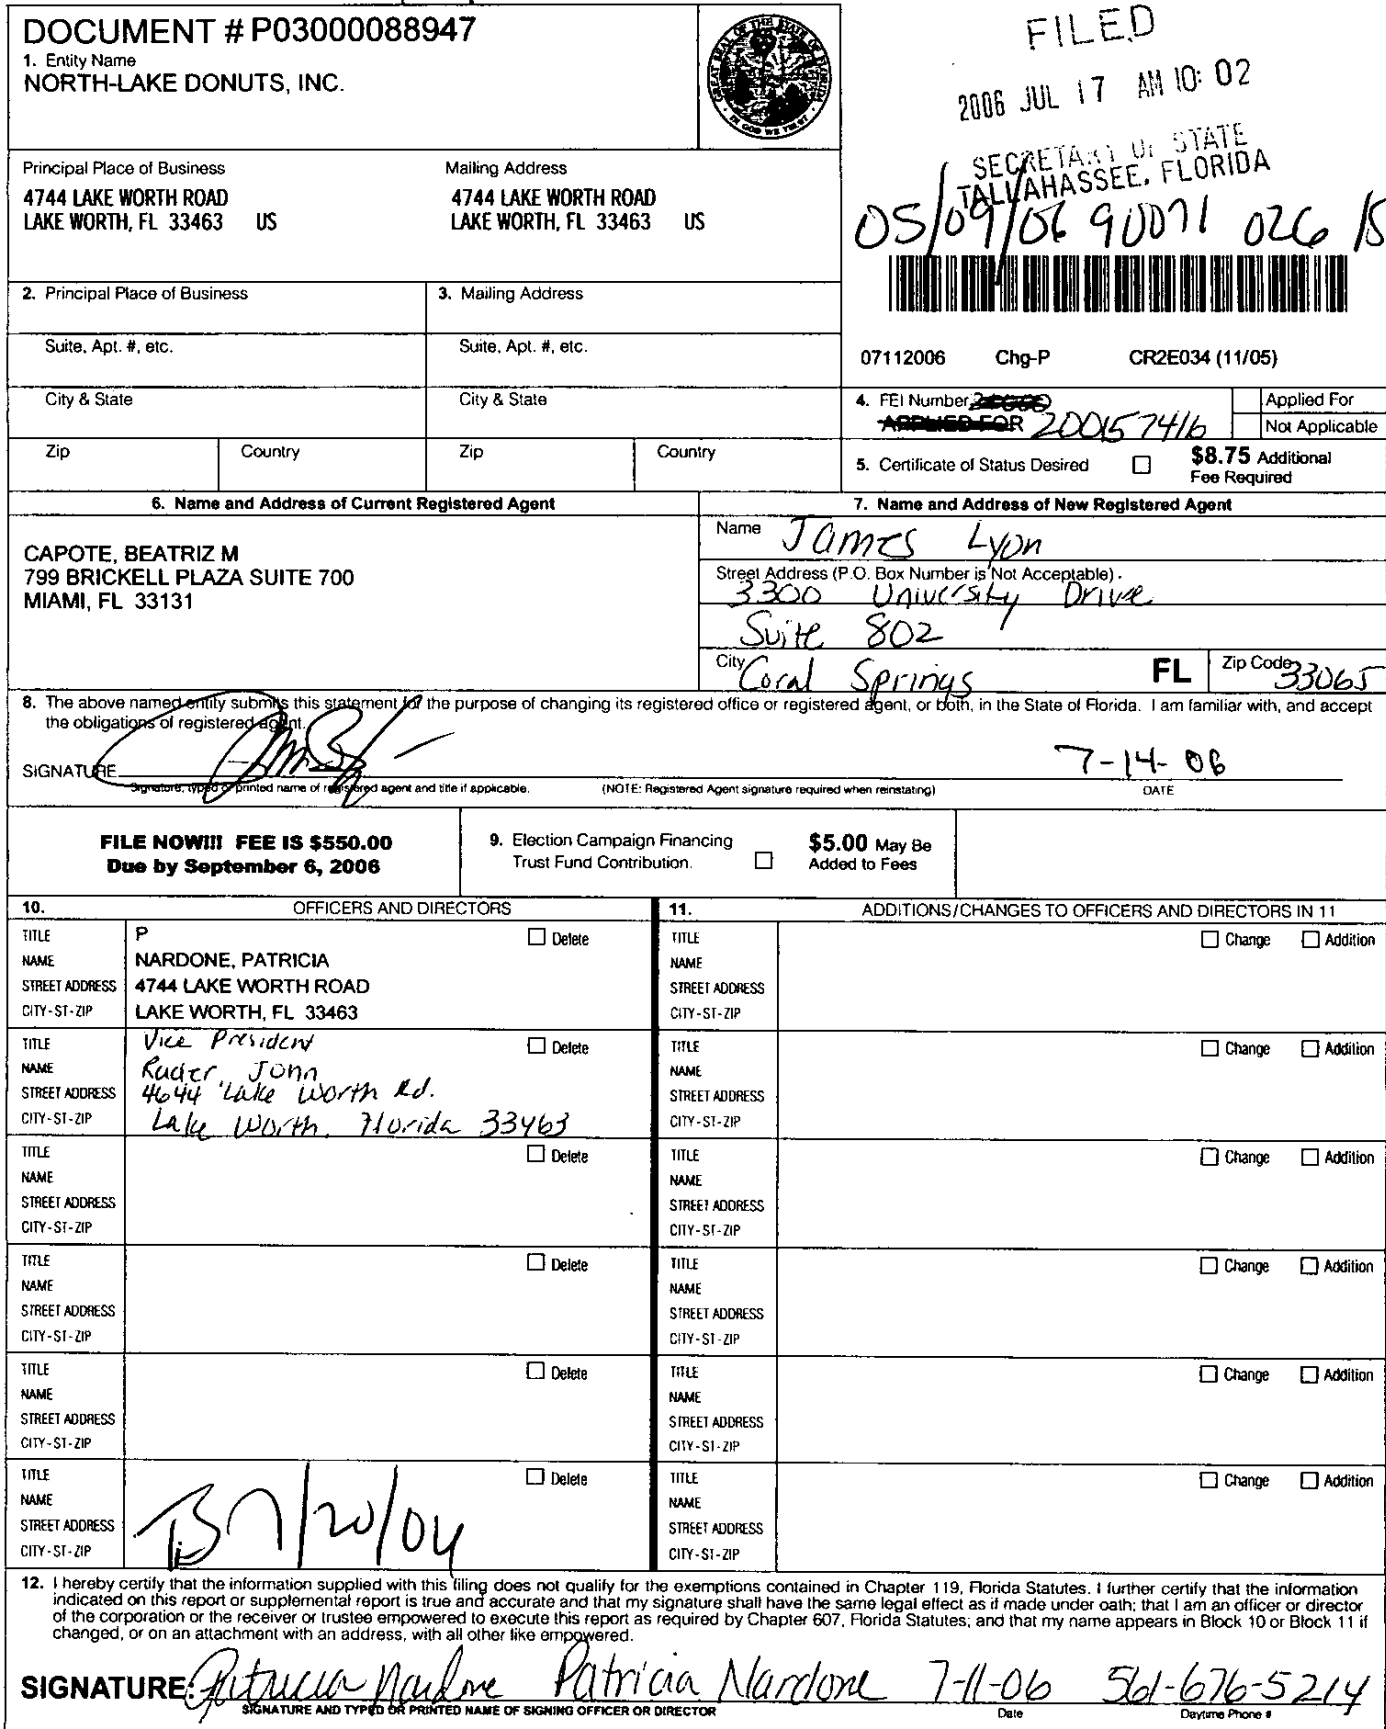 DOCUMENT # P03000088947
1. Entity Name
NORTH-LAKE DONUTS, INC.
GREAT SEAL OF THE STATE OF FLORIDA
IN GOD WE TRUST
FILED
2006 JUL 17 AM 10: 02
SECRETARY OF STATE
TALLAHASSEE, FLORIDA
Principal Place of Business
4744 LAKE WORTH ROAD
LAKE WORTH, FL 33463 US
Mailing Address
4744 LAKE WORTH ROAD
LAKE WORTH, FL 33463 US
05/09/06 90071 026
2. Principal Place of Business
3. Mailing Address
Suite, Apt. #, etc.
Suite, Apt. #, etc.
07112006 Chg-P CR2E034 (11/05)
City & State
City & State
4. FEI Number
APPLIED FOR 200157416
Applied For
Not Applicable
Zip Country
Zip Country
5. Certificate of Status Desired ☐ $8.75 Additional
Fee Required
6. Name and Address of Current Registered Agent
7. Name and Address of New Registered Agent
CAPOTE, BEATRIZ M
799 BRICKELL PLAZA SUITE 700
MIAMI, FL 33131
Name James Lyon
Street Address (P.O. Box Number is Not Acceptable)
3300 University Drive
Suite 802
City Coral Springs FL Zip Code 33065
8. The above named entity submits this statement for the purpose of changing its registered office or registered agent, or both, in the State of Florida. I am familiar with, and accept
the obligations of registered agent.
SIGNATURE 7-14-06
Signature, typed or printed name of registered agent and title if applicable. (NOTE: Registered Agent signature required when reinstating) DATE
FILE NOW!!! FEE IS $550.00
Due by September 6, 2006
9. Election Campaign Financing
Trust Fund Contribution. ☐ $5.00 May Be
Added to Fees
10. OFFICERS AND DIRECTORS
11. ADDITIONS/CHANGES TO OFFICERS AND DIRECTORS IN 11
TITLE P ☐ Delete
NAME NARDONE, PATRICIA
STREET ADDRESS 4744 LAKE WORTH ROAD
CITY-ST-ZIP LAKE WORTH, FL 33463
TITLE ☐ Change ☐ Addition
NAME
STREET ADDRESS
CITY-ST-ZIP
TITLE Vice President ☐ Delete
NAME John
STREET ADDRESS 4644 Lake Worth Rd.
CITY-ST-ZIP Lake Worth, Florida 33463
TITLE ☐ Change ☐ Addition
NAME
STREET ADDRESS
CITY-ST-ZIP
TITLE ☐ Delete
NAME
STREET ADDRESS
CITY-ST-ZIP
TITLE ☐ Change ☐ Addition
NAME
STREET ADDRESS
CITY-ST-ZIP
TITLE ☐ Delete
NAME
STREET ADDRESS
CITY-ST-ZIP
TITLE ☐ Change ☐ Addition
NAME
STREET ADDRESS
CITY-ST-ZIP
TITLE ☐ Delete
NAME
STREET ADDRESS
CITY-ST-ZIP
TITLE ☐ Change ☐ Addition
NAME
STREET ADDRESS
CITY-ST-ZIP
TITLE ☐ Delete
NAME
STREET ADDRESS
CITY-ST-ZIP
TITLE ☐ Change ☐ Addition
NAME
STREET ADDRESS
CITY-ST-ZIP
12. I hereby certify that the information supplied with this filing does not qualify for the exemptions contained in Chapter 119, Florida Statutes. I further certify that the information
indicated on this report or supplemental report is true and accurate and that my signature shall have the same legal effect as if made under oath; that I am an officer or director
of the corporation or the receiver or trustee empowered to execute this report as required by Chapter 607, Florida Statutes; and that my name appears in Block 10 or Block 11 if
changed, or on an attachment with an address, with all other like empowered.
SIGNATURE: Patricia Nardone Patricia Nardone 7-11-06 561-676-5214
SIGNATURE AND TYPED OR PRINTED NAME OF SIGNING OFFICER OR DIRECTOR Date Daytime Phone #